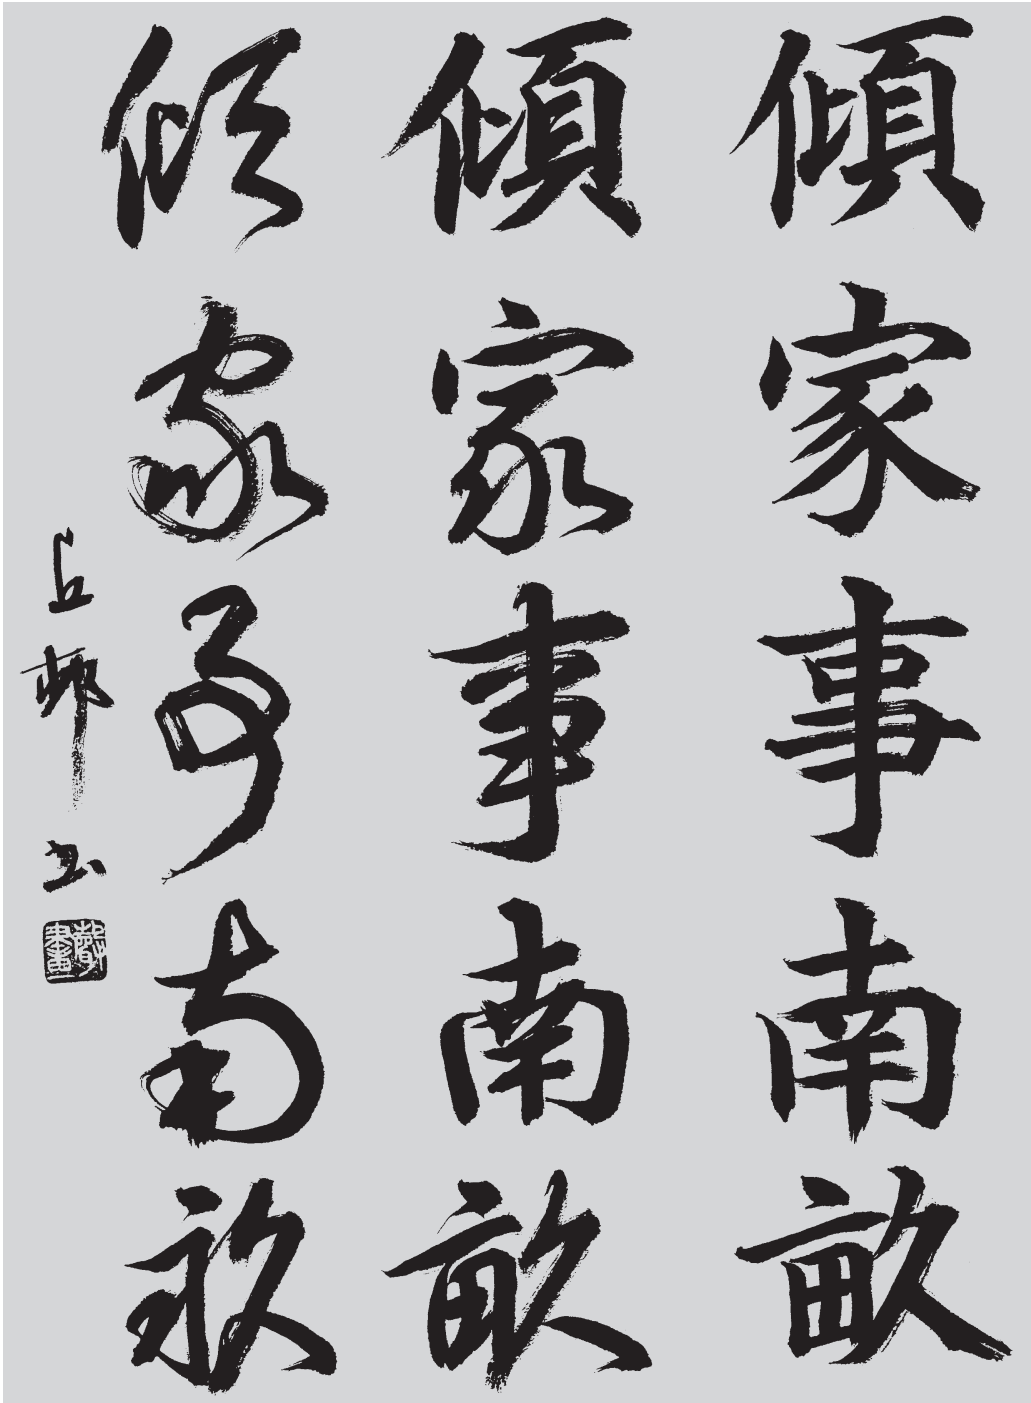 傾家事南畝
傾家事南畝
傾家事南畝
丘邨书